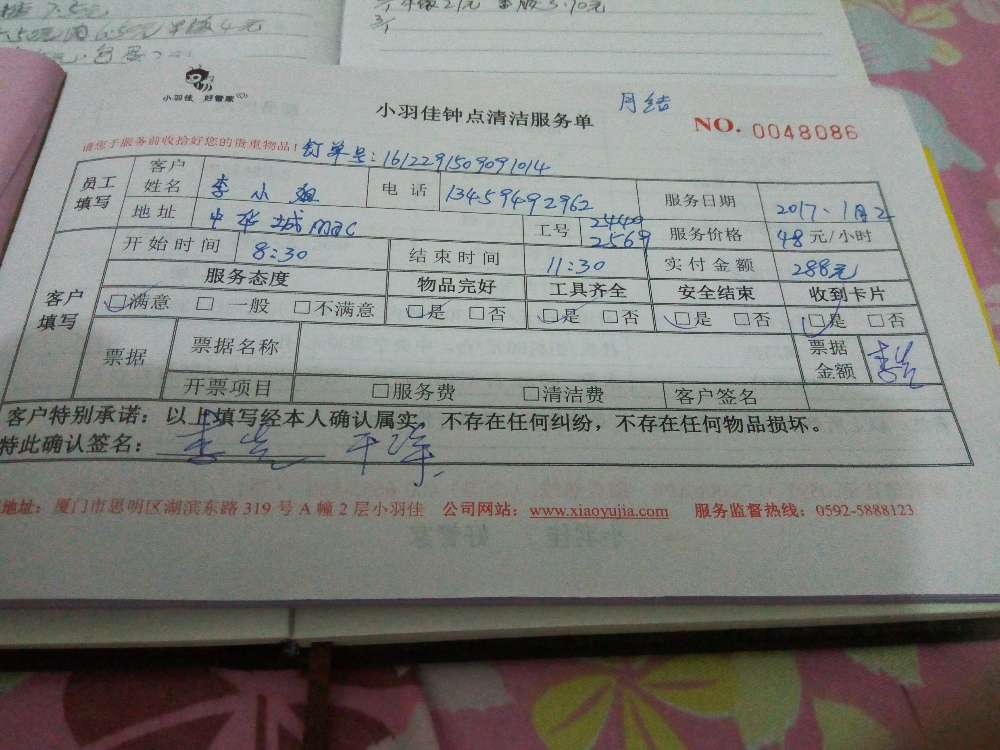 小羽佳 好管家
小羽佳钟点清洁服务单
月结
NO. 0048086
请您于服务前收拾好您的贵重物品！
订单号：1612291509091014
员工填写 客户姓名 李小姐 电话 13459492962 服务日期 2017.1月2
地址 中华城mac 工号 2440 2569 服务价格 48元/小时
客户填写 开始时间 8:30 结束时间 11:30 实付金额 288元
服务态度 物品完好 工具齐全 安全结束 收到卡片
□满意 □一般 □不满意 □是 □否 □是 □否 □是 □否 □是 □否
票据 票据名称 票据金额
开票项目 □服务费 □清洁费 客户签名
客户特别承诺：以上填写经本人确认属实，不存在任何纠纷，不存在任何物品损坏。
特此确认签名： 干净
地址：厦门市思明区湖滨东路 319 号 A 幢 2 层小羽佳 公司网站：www.xiaoyujia.com 服务监督热线：0592-5888123